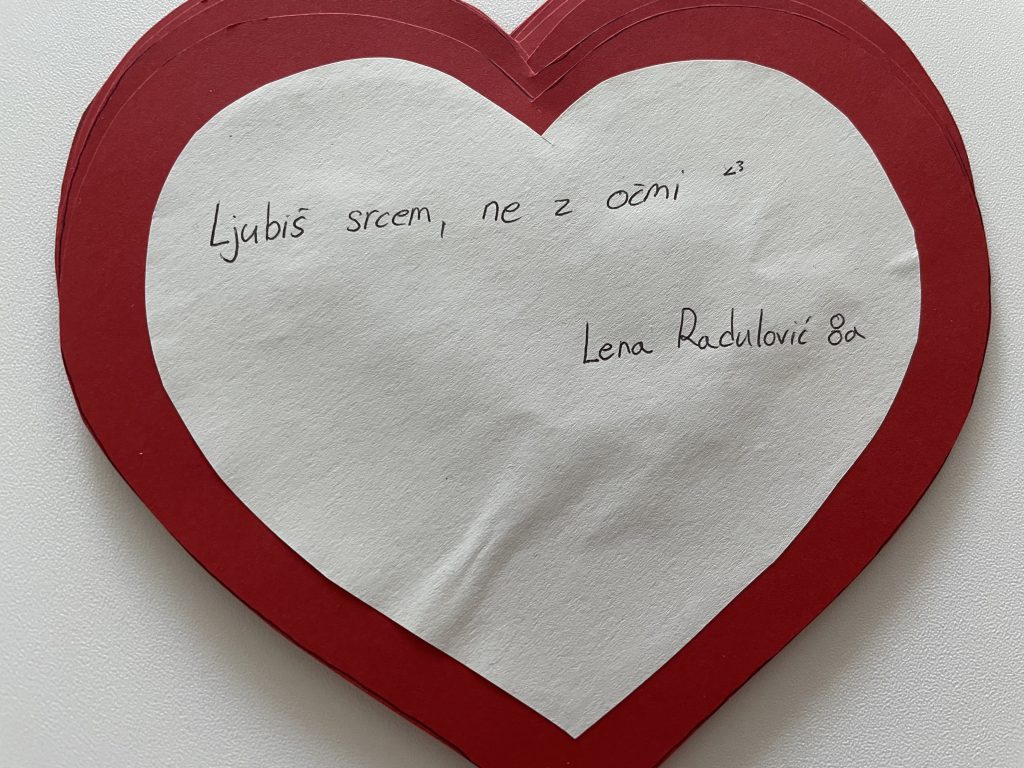 Ljubiš srcem, ne z očmi <3
Lena Radulović 8a